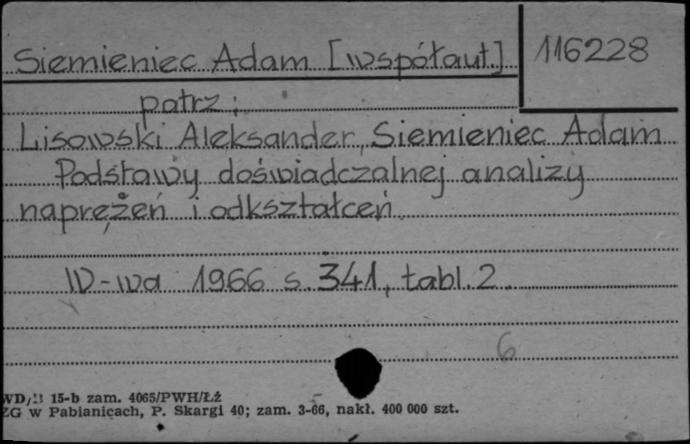 Siemieniec Adam [współaut.]
116228
patrz:
Lisowski Aleksander, Siemieniec Adam
Podstawy doświadczalnej analizy
naprężeń i odkształceń.
W-wa 1966 s. 341, tabl. 2.
6
15-b zam. 4065/PWH/Łż
ZG w Pabianicach, P. Skargi 40; zam. 3-66, nakł. 400 000 szt.